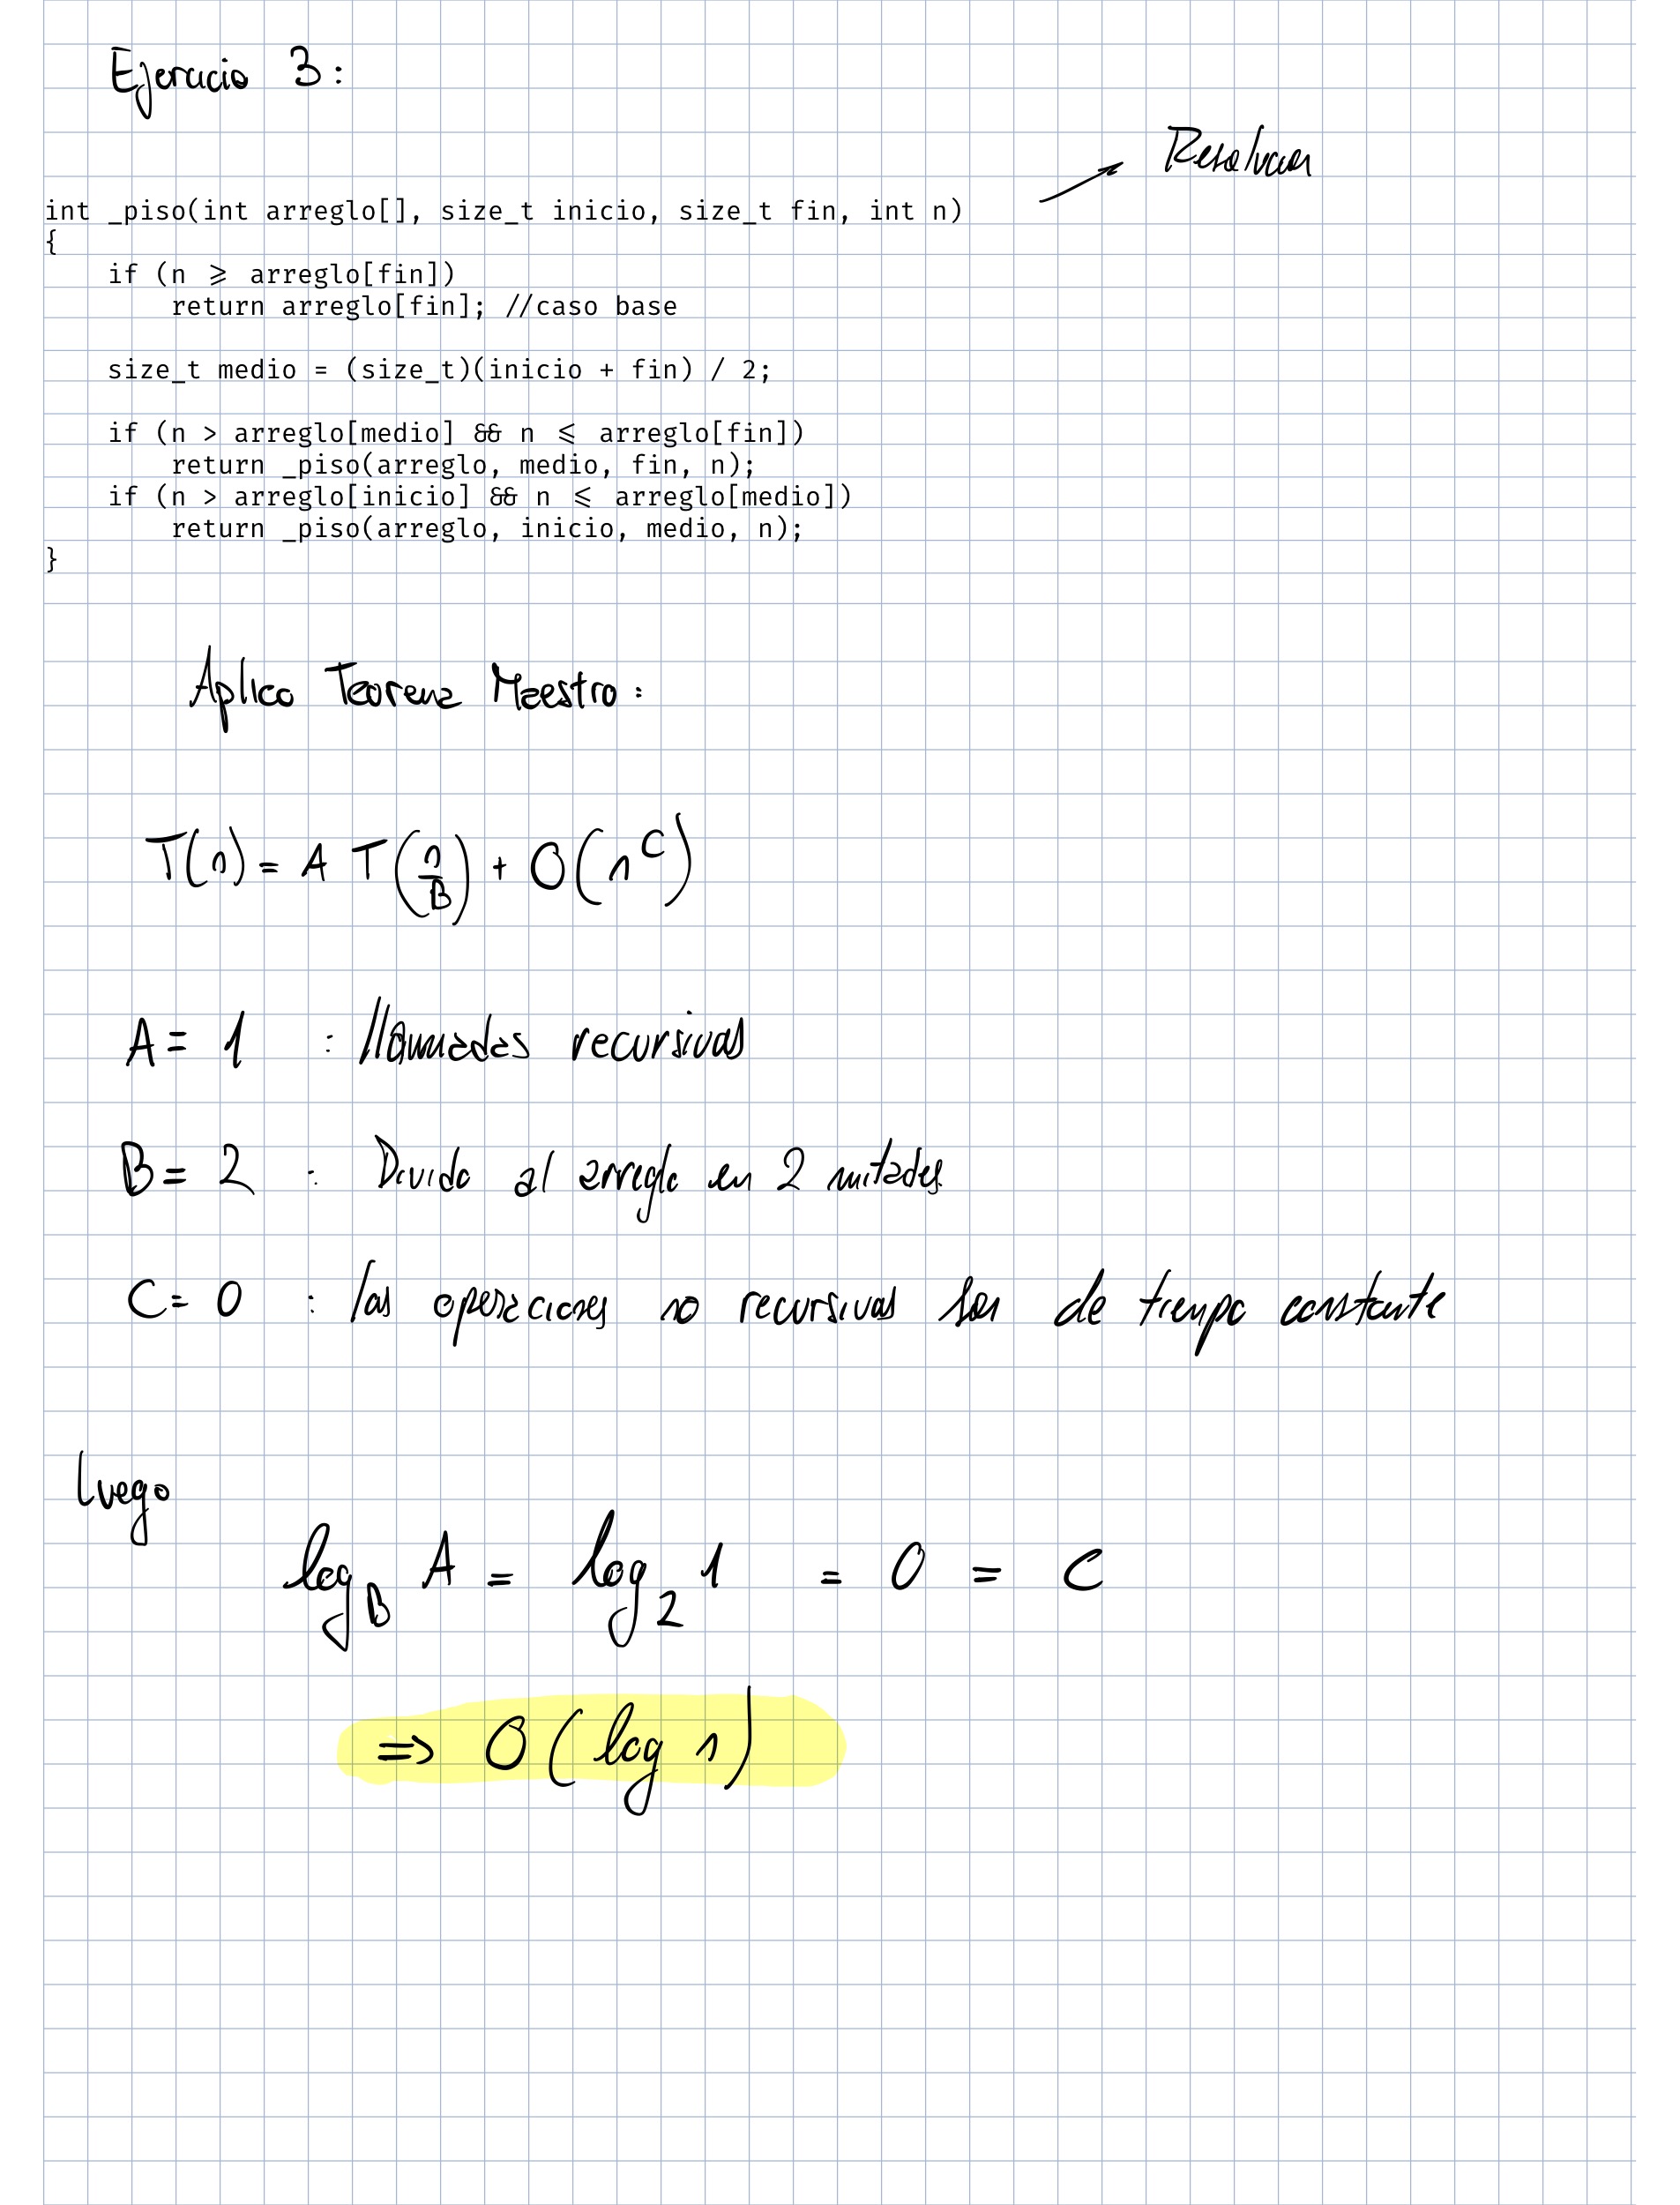 Ejercicio 3:
Resolucion
int _piso(int arreglo[], size_t inicio, size_t fin, int n)
{
    if (n >= arreglo[fin])
        return arreglo[fin]; //caso base
    size_t medio = (size_t)(inicio + fin) / 2;
    if (n > arreglo[medio] && n <= arreglo[fin])
        return _piso(arreglo, medio, fin, n);
    if (n > arreglo[inicio] && n <= arreglo[medio])
        return _piso(arreglo, inicio, medio, n);
}
Aplico Teorema Maestro:
T(n) = A T(n/B) + O(n^C)
A = 1 : llamadas recursivas
B = 2 : Divido al arreglo en 2 mitades
C = 0 : las operaciones no recursivas son de tiempo constante
Luego
log_B A = log_2 1 = 0 = C
=> O(log n)